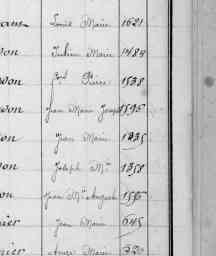 Louis Marie 1621
von Julien Marie 1484
von Jh Pierre 1538
von Jean Marie Joseph 1595
on Jean Marie 1335
on Joseph Mie 1358
on Jean Mie Auguste 1595
nier Jean Marie 645
nier André Marie 320